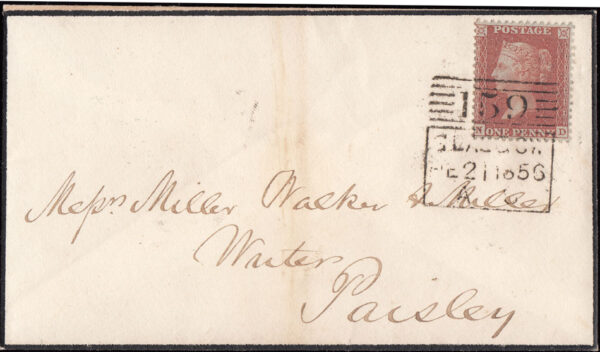 POSTAGE
159
N ONE PENNY D
GLASGOW
FE 21 1856
Messrs Miller Walker & Miller
Writers
Paisley